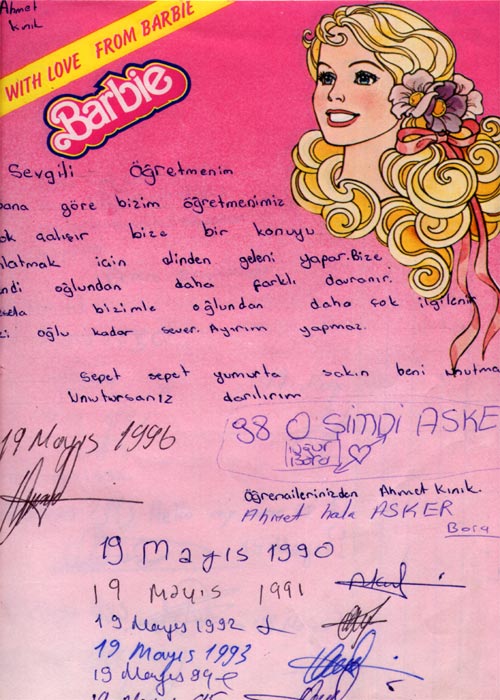 Ahmet
Kınık
WITH LOVE FROM BARBIE
Barbie
Sevgili Öğretmenim
bana göre bizim öğretmenimiz
ok çalışır bize bir konuyu
latmak için elinden geleni yapar. Bize
ndi oğlundan daha farklı davranır.
sela bizimle oğlundan daha çok ilgilenir
zi oğlu kadar sever. Ayırım yapmaz.
Sepet sepet yumurta sakın beni unutma
Unutursanız darılırım
19 Mayıs 1996
98 O ŞİMDİ ASKE
uğur
Bora
Öğrencilerinizden Ahmet Kınık.
Ahmet hala ASKER
Bora
19 Mayıs 1990
19 Mayıs 1991
19 Mayıs 1992
19 Mayıs 1993
19 Mayıs 94